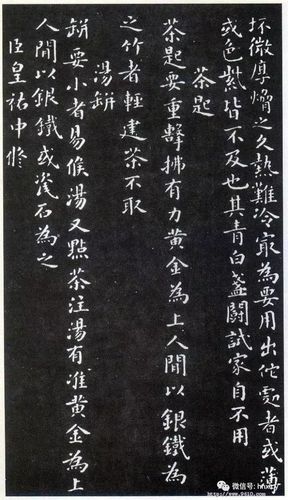 坯微厚熁之久熱難冷最為要用出佗處者或薄
或色紫皆不及也其青白盞鬬試家自不用
茶匙
茶匙要重擊拂有力黃金為上人間以銀鐵為
之竹者輕建茶不取
湯缾
缾要小者易候湯又點茶注湯有准黃金為上
人間以銀鐵或瓷石為之
臣皇祐中修
微信号:
http://www.9610.com